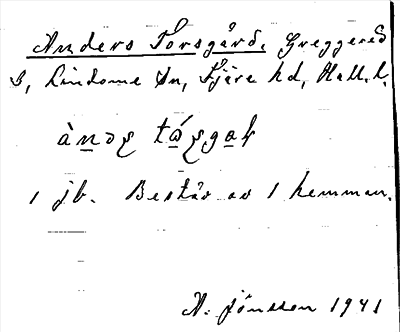 Anders Torsgård. Greggered
S, Lindome sn, Fjäre hd, Hall. l.
1 jb. Består av 1 hemman.
A. Jönsson 1941